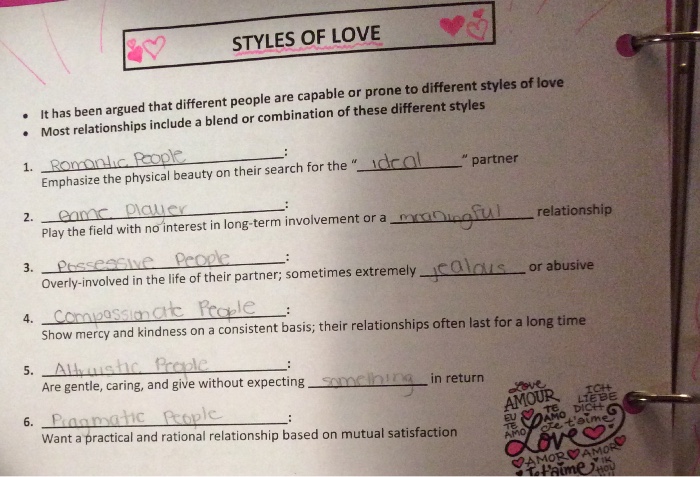 STYLES OF LOVE
• It has been argued that different people are capable or prone to different styles of love
• Most relationships include a blend or combination of these different styles
1. Romantic People :
Emphasize the physical beauty on their search for the "ideal" partner
2. Game player :
Play the field with no interest in long-term involvement or a meaningful relationship
3. Possessive People :
Overly-involved in the life of their partner; sometimes extremely jealous or abusive
4. Compassionate People :
Show mercy and kindness on a consistent basis; their relationships often last for a long time
5. Altruistic People :
Are gentle, caring, and give without expecting something in return
6. Pragmatic People :
Want a practical and rational relationship based on mutual satisfaction
Love
AMOUR ICH LIEBE DICH
EU TE AMO TE AMO
Je t'aime
Love
AMOR AMOR
Je t'aime